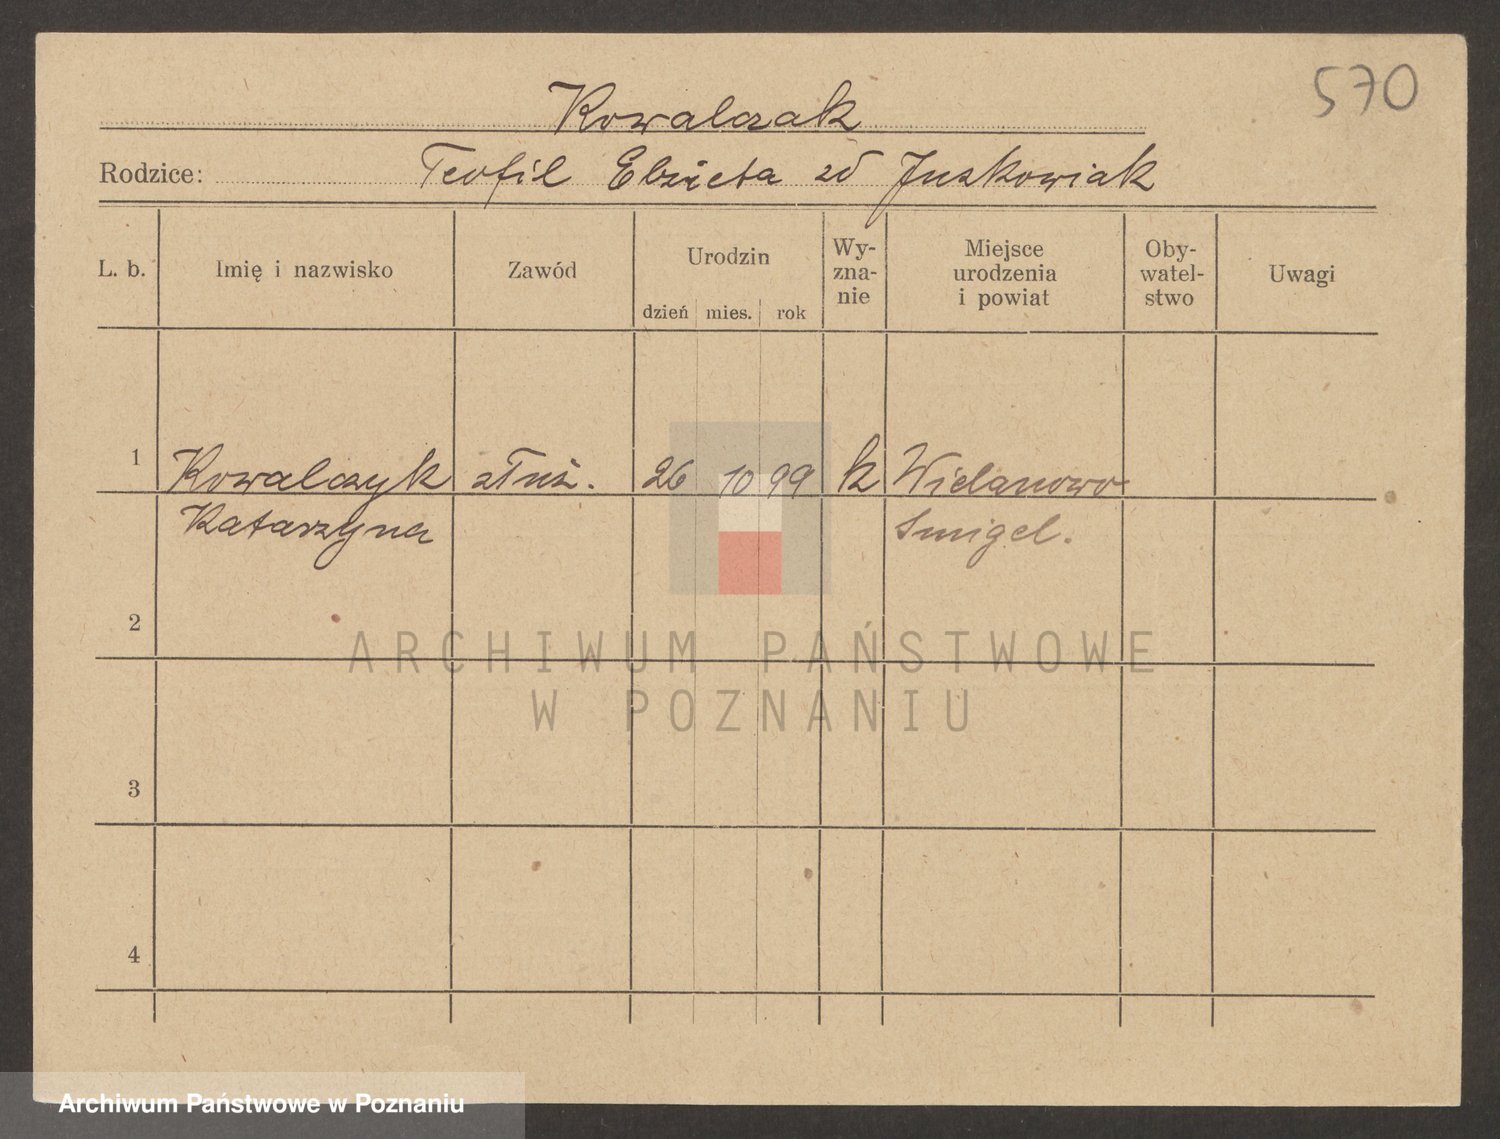 570
Kowalczak
Rodzice: Teofil Elzieta zd Juskowiak
L. b. Imię i nazwisko Zawód Urodzin dzień mies. rok Wy-zna-nie Miejsce urodzenia i powiat Oby-watel-stwo Uwagi
1 Kowalczyk służ. 26 10 99 k Wielanowo
Katarzyna Smigel.
2
ARCHIWUM PAŃSTWOWE
W POZNANIU
3
4
Archiwum Państwowe w Poznaniu